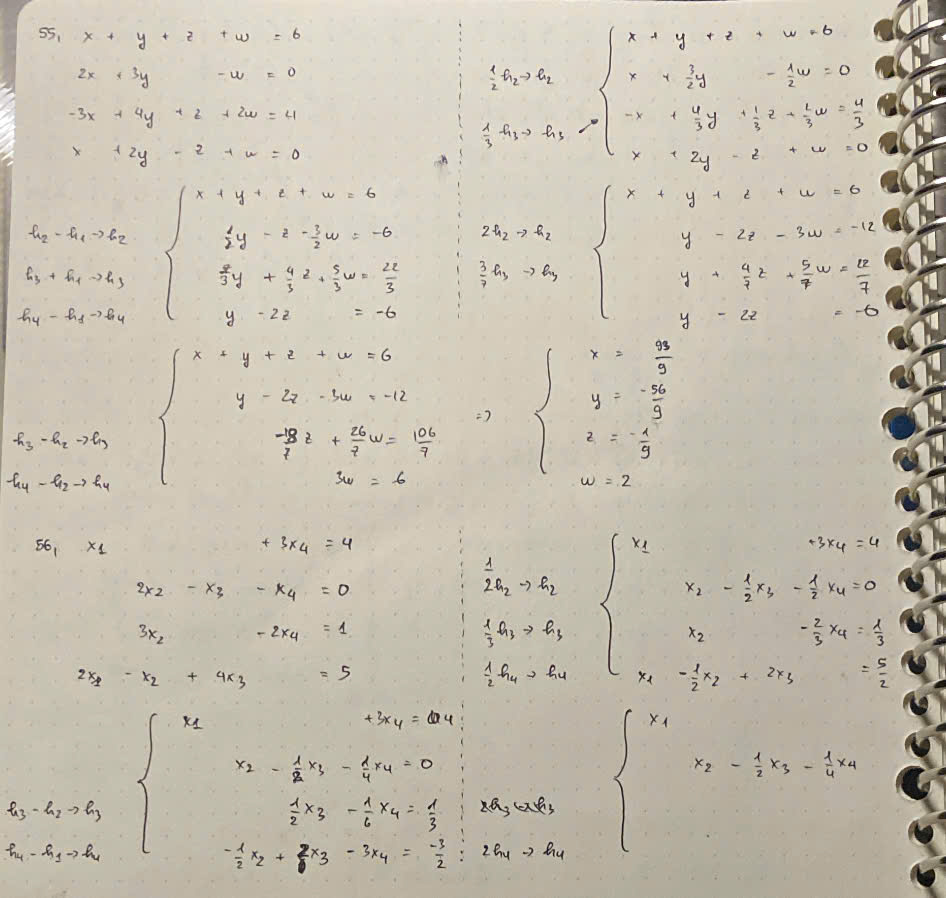 55, x + y + z + w = 6
2x + 3y - w = 0
-3x + 4y + z + 2w = 4
x + 2y - z + w = 0
½h₂ → h₂
⅓h₃ → h₃
x + y + z + w = 6
x + 3/2y - 1/2w = 0
-x + 4/3y + 1/3z + 2/3w = 4/3
x + 2y - z + w = 0
h₂ - h₁ → h₂
h₃ + h₁ → h₃
h₄ - h₁ → h₄
x + y + z + w = 6
1/2y - z - 3/2w = -6
7/3y + 4/3z + 5/3w = 22/3
y - 2z = -6
2h₂ → h₂
3/7h₃ → h₃
x + y + z + w = 6
y - 2z - 3w = -12
y + 4/7z + 5/7w = 22/7
y - 2z = -6
h₃ - h₂ → h₃
h₄ - h₂ → h₄
x + y + z + w = 6
y - 2z - 3w = -12
-18/7z + 26/7w = 106/7
3w = 6
=>
x = 93/9
y = -56/9
z = -1/9
w = 2
56, x₁ + 3x₄ = 4
2x₂ - x₃ - x₄ = 0
3x₂ - 2x₄ = 1
2x₁ - x₂ + 4x₃ = 5
1/2h₂ → h₂
1/3h₃ → h₃
1/2h₄ → h₄
x₁ + 3x₄ = 4
x₂ - 1/2x₃ - 1/2x₄ = 0
x₂ - 2/3x₄ = 1/3
x₁ - 1/2x₂ + 2x₃ = 5/2
h₃ - h₂ → h₃
h₄ - h₁ → h₄
x₁ + 3x₄ = 4
x₂ - 1/2x₃ - 1/4x₄ = 0
1/2x₃ - 1/6x₄ = 1/3
-1/2x₂ + 2x₃ - 3x₄ = -3/2
2h₄ → h₄
x₁
x₂ - 1/2x₃ - 1/4x₄